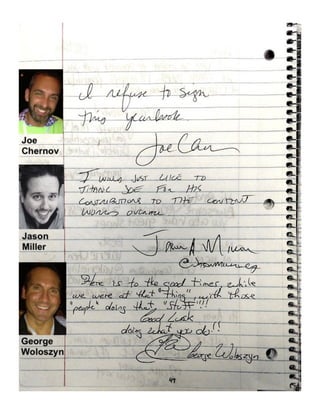 I refuse to sign
this yearbook.
Joe Chernov
Joe
Chernov
I WOULD JUST LIKE TO
THANK JOE FOR HIS
CONTRIBUTIONS TO THE CONTENT
WORLD
Jason
Miller
Jason A. Miller
Here is to the good times, while
we were at that "thing", with those
"people" doing that "stuff"!!!
Good Luck
doing what you do!!
George Woloszyn
George
Woloszyn
49